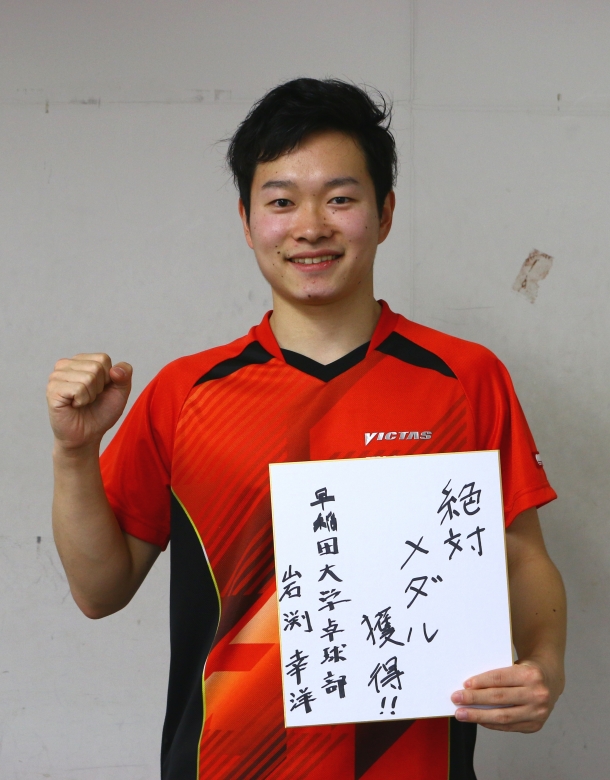 VICTAS
絶対
メダル
獲得!!
早稲田大学卓球部
岩渕 幸洋